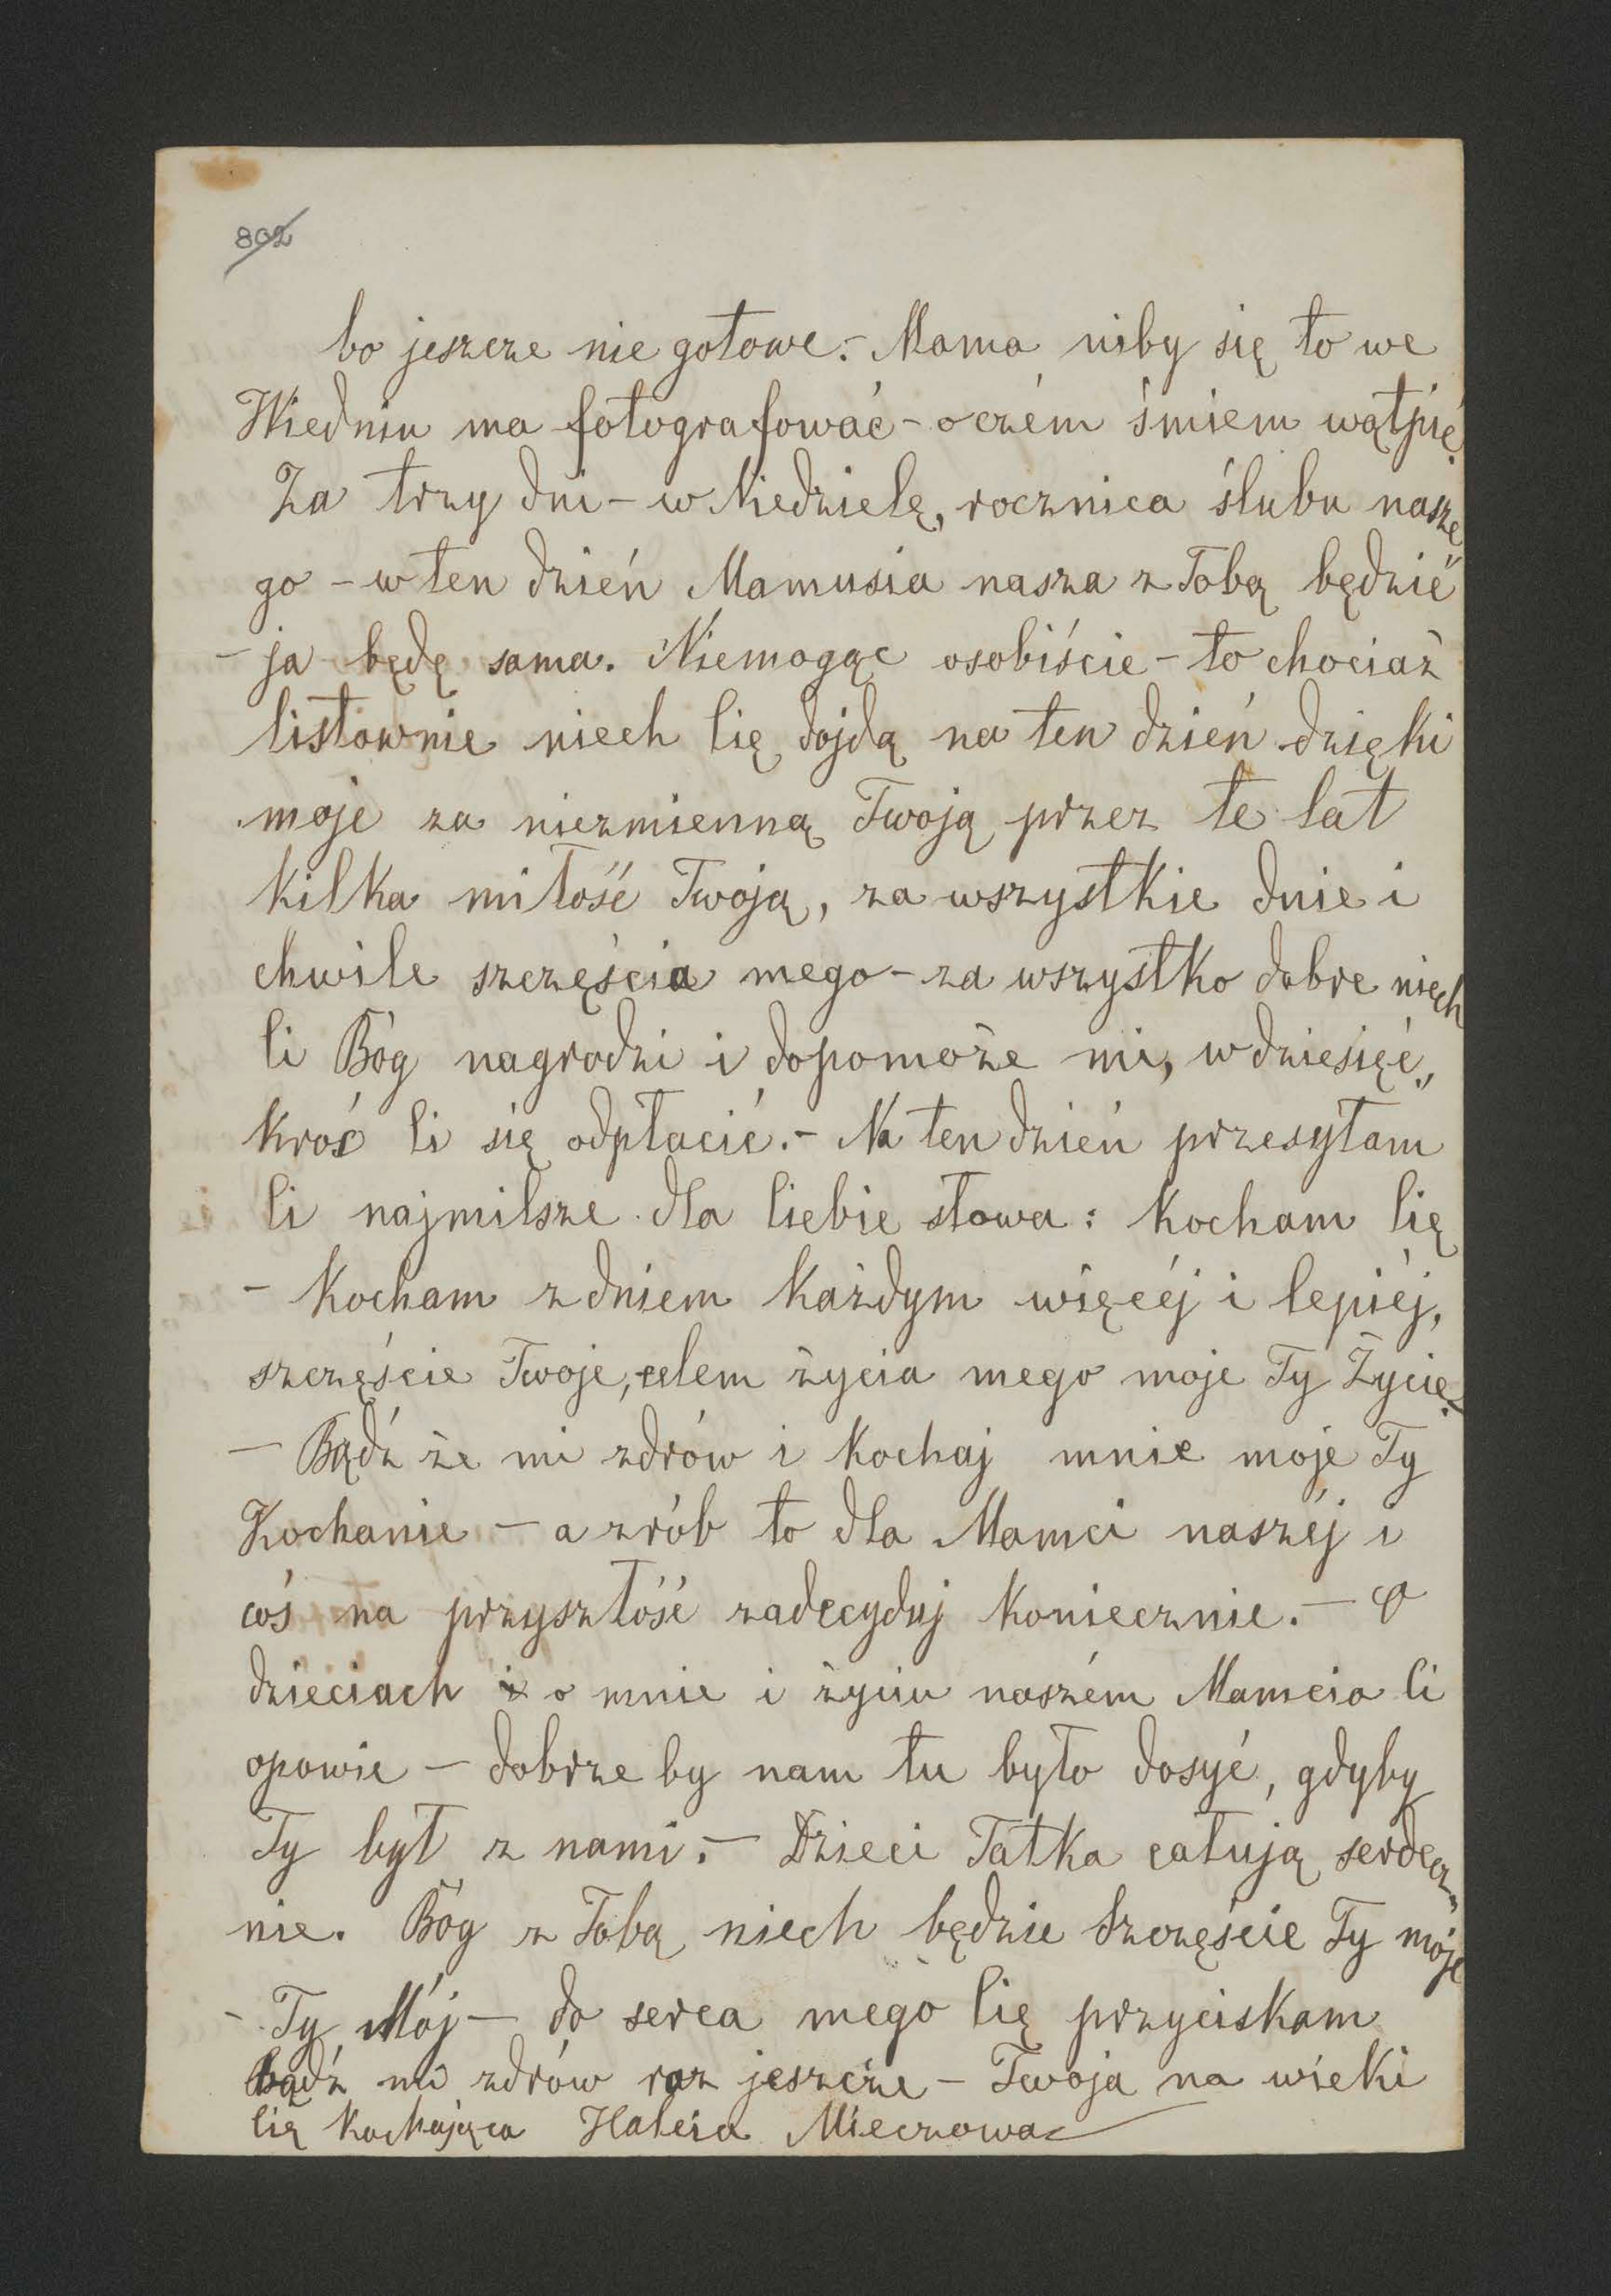 802
bo jeszcze nie gotowe.- Mama niby się to we
Wiedniu ma fotografować - o czém śmiem wątpić.
Za trzy dni - w Niedzielę, rocznica ślubu nasze
go - w ten dzień Mamusia nasza z Tobą będzie
- ja będę sama. Niemogąc osobiście - to chociaż
listownie niech Cię dojdą na ten dzień dzięki
moje za niezmienną Twoją przez te lat
kilka miłość Twoją, za wszystkie dnie i
chwile szczęścia mego - za wszystko dobre niech
Ci Bóg nagrodzi i dopomoże mi, w dziesięć„
kroć Ci się odpłacić.- Na ten dzień przesyłam
Ci najmilsze dla Ciebie słowa: Kocham Cię
- Kocham z dniem każdym więcéj i lepiéj,
szczęście Twoje, celem życia mego moje Ty Życie.
- Bądź że mi zdrów i kochaj mnie moje Ty
Kochanie - a zrób to dla Mamci naszéj i
coś na przyszłość zadecyduj koniecznie. - O
dzieciach i o mnie i życiu naszém Mamcia Ci
opowie - dobrze by nam tu było dosyć, gdyby
Ty był z nami. - Dzieci Tatka całują serdecz„
nie. Bóg z Tobą niech będzie Szczęście Ty moje
- Ty Mój - do serca mego Cię przyciskam
bądź mi zdrów raz jeszcze - Twoja na wieki
Cię kochająca Halcia Mieczowa